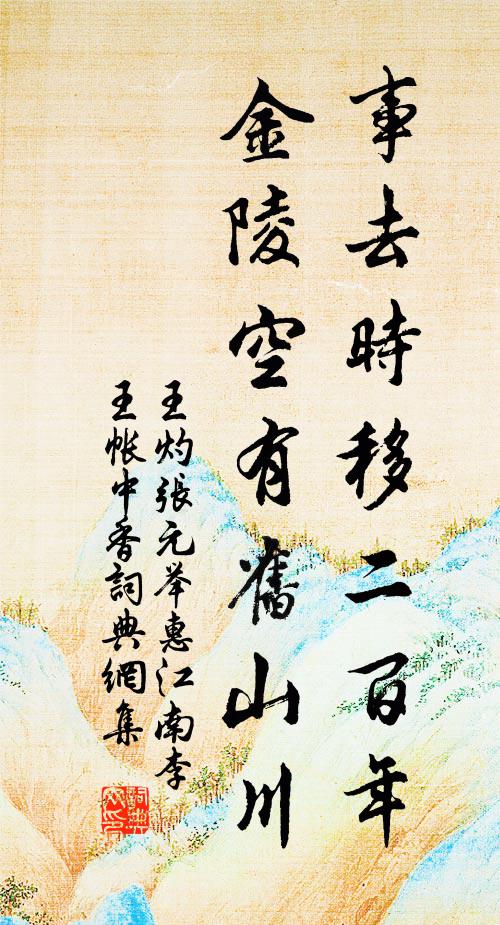 事去時移二百年
金陵空有舊山川
王灼張元举惠江南李
王帐中香詞典網集